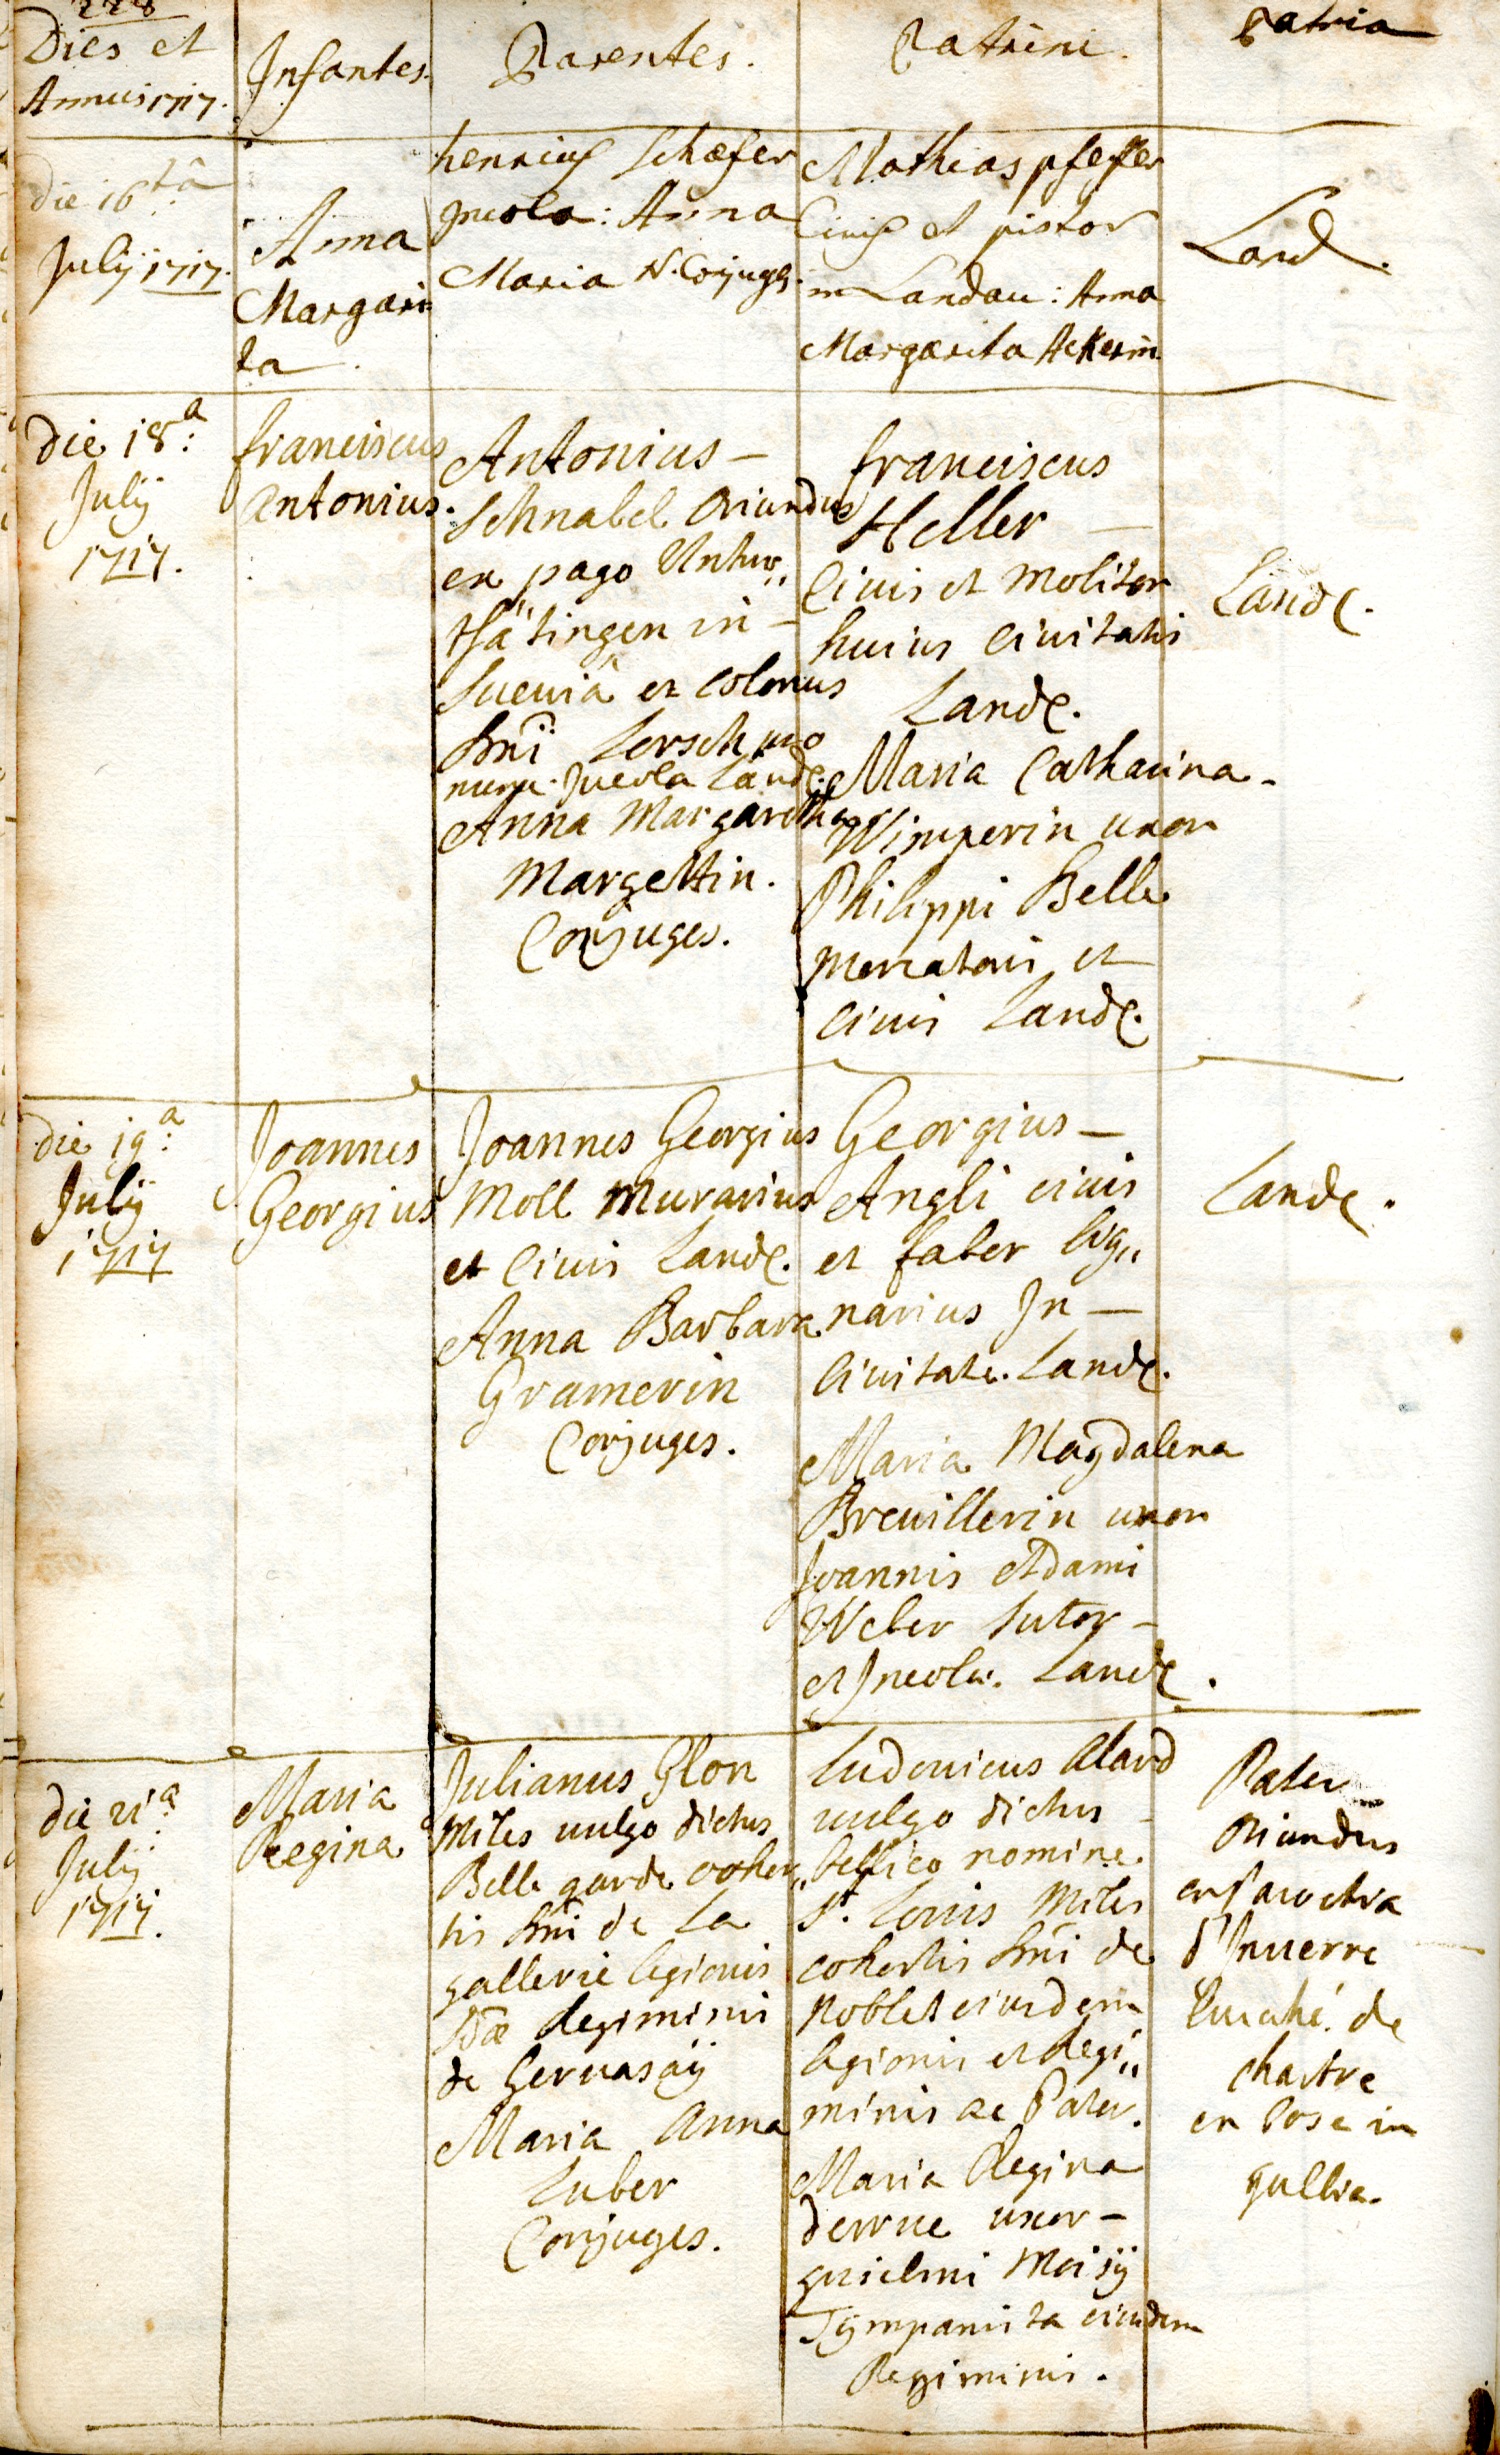 228
Dies et
Annus 1717.
Infantes.
Parentes.
Patrini.
Patria
die 16tâ
July 1717.
Anna
Margari=
ta
henricus Schæfer
incola: Anna
Maria N. Conjuges.
Mathias pfeffer
Civis et pistor
in Landau: Anna
Margarita Ackerin
Land.
die 18a:
July
1717.
franciscus
Antonius.
Antonius —
Schnabel Oriundus
ex pago Unter„
thätingen in —
Suevia et colonus
Dni Lersch pro
nunc Incola Lande.
Anna Margaretha
Margettin.
Conjuges.
franciscus
Heller —
Civis et Molitor
huius Civitatis
Lande.
Maria Catharina
Wimperin uxor
Philippi Belle
Mercatoris et
Civis Lande.
Lande.
die 19a:
July
1717
Joannes
Georgius
Joannes Georgius
Moll Murarius
et Civis Lande.
Anna Barbara
Gramerin
Conjuges.
Georgius —
Angli civis
et faber lig„
narius In —
Civitate Lande.
Maria Magdalena
Breuillerin uxor
Joannis Adami
Weber Sutor —
et Incola. Lande.
Lande.
die 21a:
July
1717.
Maria
Regina
Julianus Glon
Miles vulgo dictus
Belle garde cohor„
tis Dni de La
gallerie legionis
2dæ Regiminis
de Gervasaÿ
Maria Anna
Luber
Conjuges.
Ludovicus Alard
vulgo dictus
bellico nomine
St. Louis Miles
cohortis Dni de
Noblet eiusdem
legionis et Regi„
minis ac Pater.
Maria Regina
derrue uxor —
guielmi Moisÿ
Tÿmpanista eiusdem
Regiminis.
Pater
Oriundus
d'Inverre
Eveché de
Chartre
en Bose in
gallia.